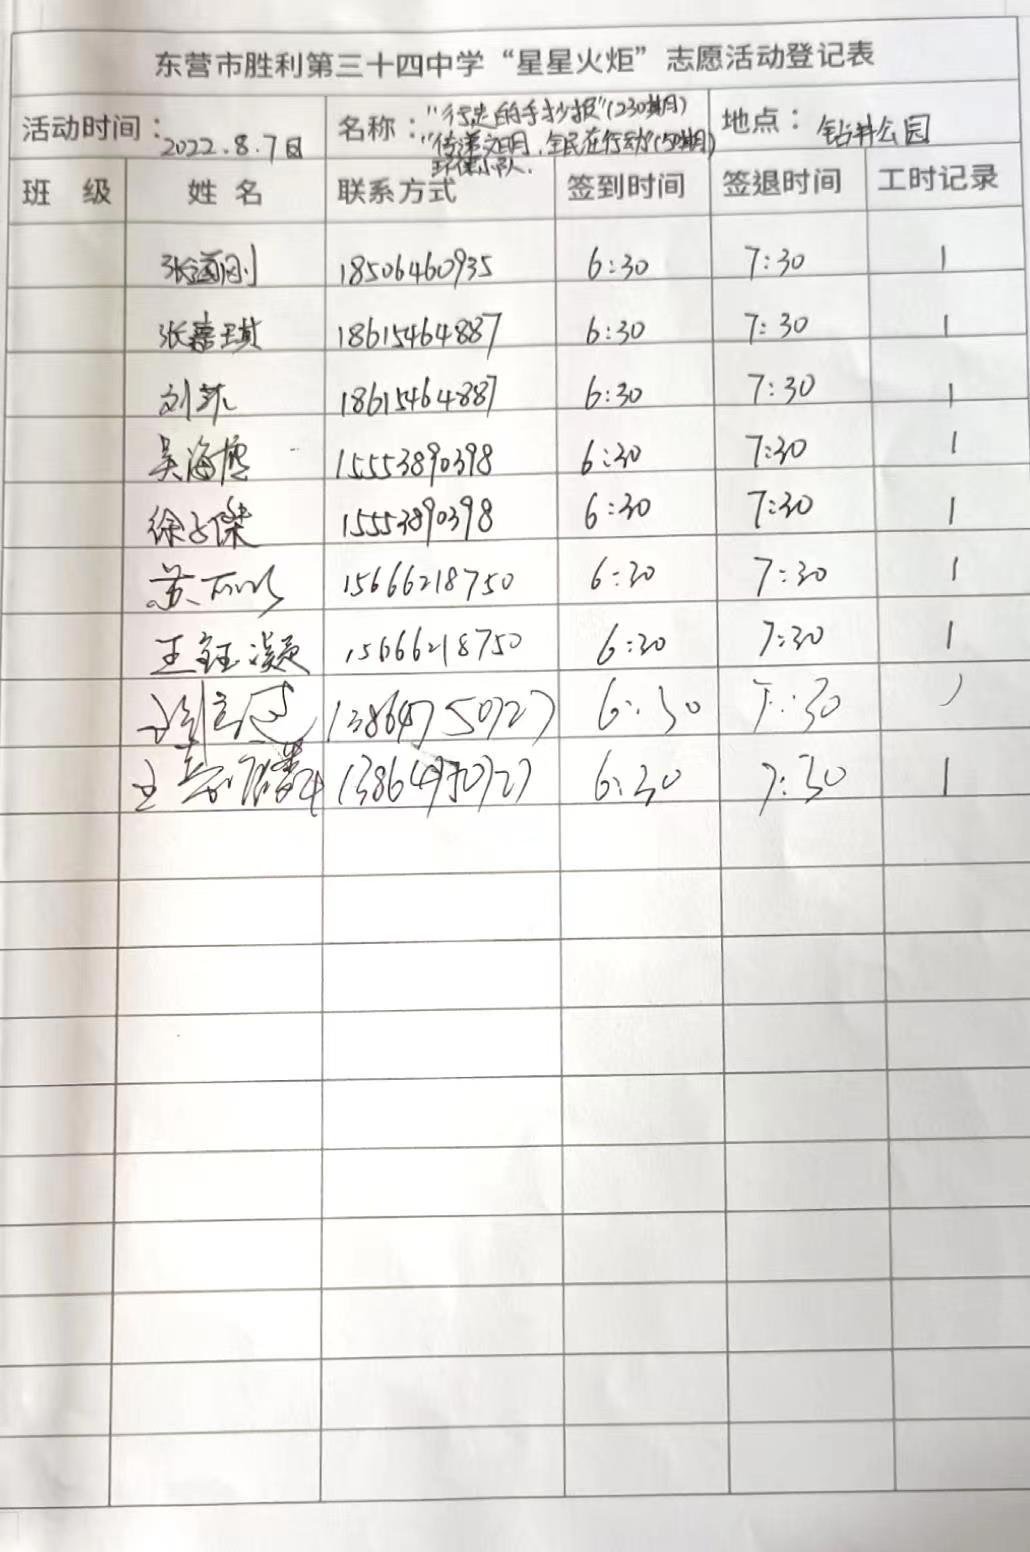 东营市胜利第三十四中学“星星火炬”志愿活动登记表
活动时间：2022.8.7日 名称：“行走的手抄报”(230期) “传递文明，全民在行动”(50期) 环保小队. 地点：钻井公园
班 级 姓 名 联系方式 签到时间 签退时间 工时记录
张道刚 18506460935 6:30 7:30 1
张嘉琪 18615464887 6:30 7:30 1
刘 18615464887 6:30 7:30 1
吴海博 15553890398 6:30 7:30 1
徐子傑 15553890398 6:30 7:30 1
苏 15666218750 6:30 7:30 1
王钰凝 15666218750 6:30 7:30 1
13864750727 6:30 7:30 1
王 13864750727 6:30 7:30 1